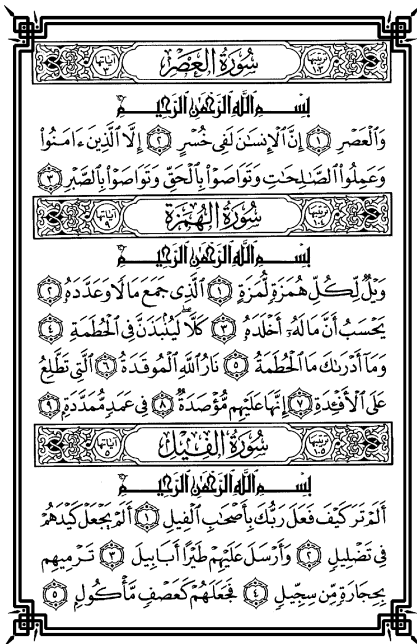 ترتيبها ١٠٣ سورة العصر آياتها ٣
بسم الله الرحمن الرحيم
وَالْعَصْرِ ١ إِنَّ الْإِنسَانَ لَفِي خُسْرٍ ٢ إِلَّا الَّذِينَ ءَامَنُوا
وَعَمِلُوا الصَّالِحَاتِ وَتَوَاصَوْا بِالْحَقِّ وَتَوَاصَوْا بِالصَّبْرِ ٣
ترتيبها ١٠٤ سورة الهمزة آياتها ٩
بسم الله الرحمن الرحيم
وَيْلٌ لِّكُلِّ هُمَزَةٍ لُّمَزَةٍ ١ الَّذِي جَمَعَ مَالًا وَعَدَّدَهُ ٢
يَحْسَبُ أَنَّ مَالَهُ أَخْلَدَهُ ٣ كَلَّا ۖ لَيُنبَذَنَّ فِي الْحُطَمَةِ ٤
وَمَا أَدْرَىٰكَ مَا الْحُطَمَةُ ٥ نَارُ اللَّهِ الْمُوقَدَةُ ٦ الَّتِي تَطَّلِعُ
عَلَى الْأَفْئِدَةِ ٧ إِنَّهَا عَلَيْهِم مُّؤْصَدَةٌ ٨ فِي عَمَدٍ مُّمَدَّدَةٍ ٩
ترتيبها ١٠٥ سورة الفيل آياتها ٥
بسم الله الرحمن الرحيم
أَلَمْ تَرَ كَيْفَ فَعَلَ رَبُّكَ بِأَصْحَابِ الْفِيلِ ١ أَلَمْ يَجْعَلْ كَيْدَهُمْ
فِي تَضْلِيلٍ ٢ وَأَرْسَلَ عَلَيْهِمْ طَيْرًا أَبَابِيلَ ٣ تَرْمِيهِم
بِحِجَارَةٍ مِّن سِجِّيلٍ ٤ فَجَعَلَهُمْ كَعَصْفٍ مَّأْكُولٍ ٥